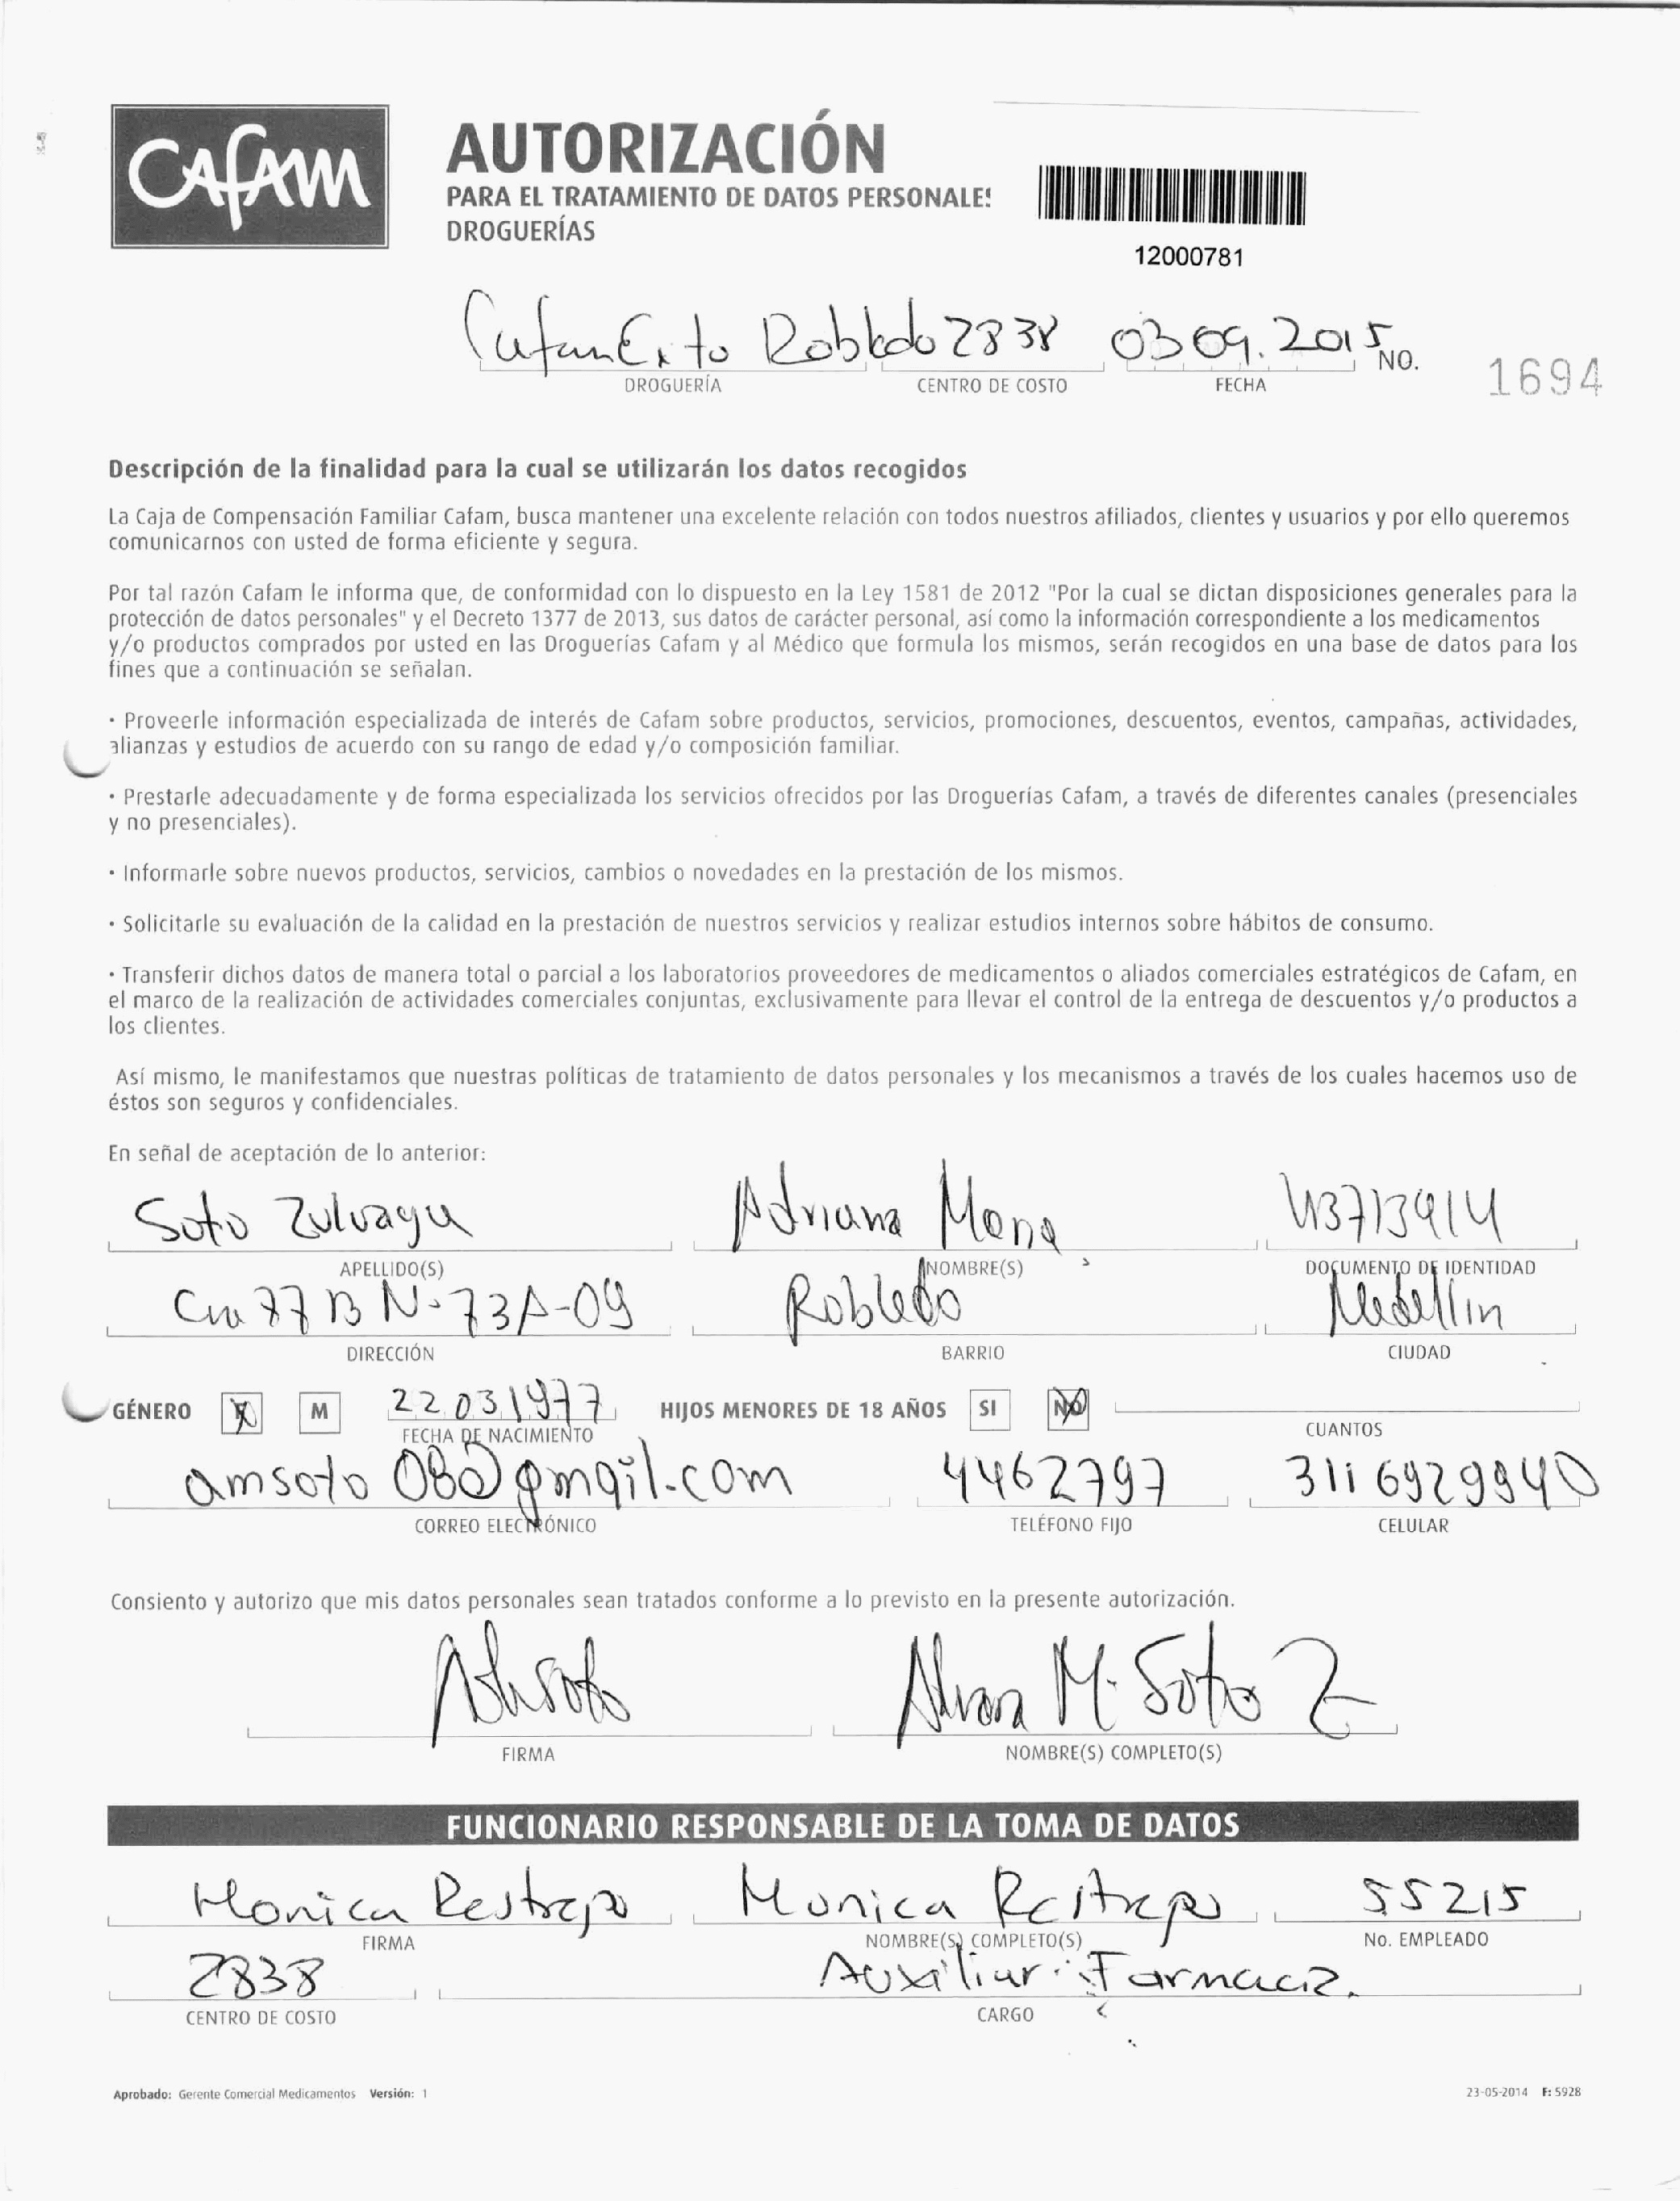 CAFAM
AUTORIZACIÓN
PARA EL TRATAMIENTO DE DATOS PERSONALES
DROGUERÍAS
12000781
Cafam Exito Robledo 2838 03 09. 2015 NO. 1694
DROGUERÍA CENTRO DE COSTO FECHA
Descripción de la finalidad para la cual se utilizarán los datos recogidos
La Caja de Compensación Familiar Cafam, busca mantener una excelente relación con todos nuestros afiliados, clientes y usuarios y por ello queremos
comunicarnos con usted de forma eficiente y segura.
Por tal razón Cafam le informa que, de conformidad con lo dispuesto en la Ley 1581 de 2012 "Por la cual se dictan disposiciones generales para la
protección de datos personales" y el Decreto 1377 de 2013, sus datos de carácter personal, así como la información correspondiente a los medicamentos
y/o productos comprados por usted en las Droguerías Cafam y al Médico que formula los mismos, serán recogidos en una base de datos para los
fines que a continuación se señalan.
· Proveerle información especializada de interés de Cafam sobre productos, servicios, promociones, descuentos, eventos, campañas, actividades,
alianzas y estudios de acuerdo con su rango de edad y/o composición familiar.
· Prestarle adecuadamente y de forma especializada los servicios ofrecidos por las Droguerías Cafam, a través de diferentes canales (presenciales
y no presenciales).
· Informarle sobre nuevos productos, servicios, cambios o novedades en la prestación de los mismos.
· Solicitarle su evaluación de la calidad en la prestación de nuestros servicios y realizar estudios internos sobre hábitos de consumo.
· Transferir dichos datos de manera total o parcial a los laboratorios proveedores de medicamentos o aliados comerciales estratégicos de Cafam, en
el marco de la realización de actividades comerciales conjuntas, exclusivamente para llevar el control de la entrega de descuentos y/o productos a
los clientes.
Así mismo, le manifestamos que nuestras políticas de tratamiento de datos personales y los mecanismos a través de los cuales hacemos uso de
éstos son seguros y confidenciales.
En señal de aceptación de lo anterior:
Soto Zuluaga Adriana Maria 43713914
APELLIDO(S) NOMBRE(S) DOCUMENTO DE IDENTIDAD
Cra 77 B N-73A-09 Robledo Medellin
DIRECCIÓN BARRIO CIUDAD
GÉNERO M 22 03 1977 HIJOS MENORES DE 18 AÑOS SI NO
FECHA DE NACIMIENTO CUANTOS
amsoto080@gmail.com 4462797 3116929940
CORREO ELECTRÓNICO TELÉFONO FIJO CELULAR
Consiento y autorizo que mis datos personales sean tratados conforme a lo previsto en la presente autorización.
M. Soto Z
FIRMA NOMBRE(S) COMPLETO(S)
FUNCIONARIO RESPONSABLE DE LA TOMA DE DATOS
Monica Restrepo Monica Restrepo 55215
FIRMA NOMBRE(S) COMPLETO(S) No. EMPLEADO
2838 Auxiliar Farmacia.
CENTRO DE COSTO CARGO
Aprobado: Gerente Comercial Medicamentos Versión: 1 23-05-2014 F: 5928